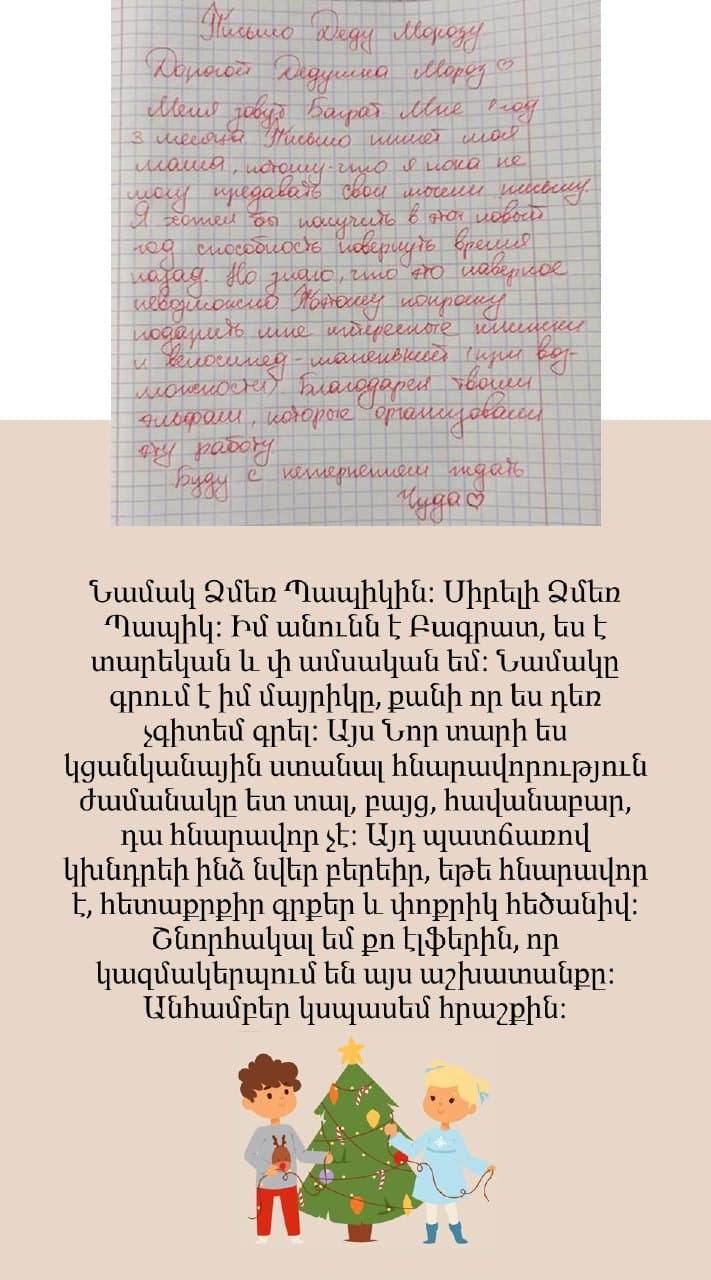 Письмо Деду Морозу
Дорогой Дедушка Мороз
Меня зовут Баграт Мне 1 год
3 месяца Письмо пишет моя
мама, потому-что я пока не
могу предавать свои мысли письму.
Я хотел бы получить в этот новый
год способность повернуть время
назад. Но знаю, что это наверное
невозможно. Поэтому попрошу
подарить мне интересные книжки
и велосипед-маленький (при воз-
можности). Благодарен твоим
эльфам, которые организовали
эту работу
Буду с нетерпением ждать
Чуда
Նամակ Ձմեռ Պապիկին։ Սիրելի Ձմեռ
Պապիկ։ Իմ անունն է Բագրատ, ես է
տարեկան և փ ամսական եմ։ Նամակը
գրում է իմ մայրիկը, քանի որ ես դեռ
չգիտեմ գրել։ Այս Նոր տարի ես
կցանկանային ստանալ հնարավորություն
ժամանակը ետ տալ, բայց, հավանաբար,
դա հնարավոր չէ։ Այդ պատճառով
կխնդրեի ինձ նվեր բերեիր, եթե հնարավոր
է, հետաքրքիր գրքեր և փոքրիկ հեծանիվ։
Շնորհակալ եմ քո էլֆերին, որ
կազմակերպում են այս աշխատանքը։
Անհամբեր կսպասեմ հրաշքին։